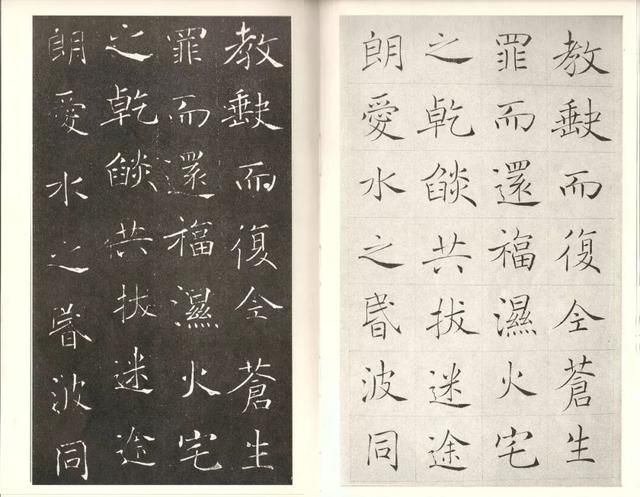 教缺而復全蒼生
罪而還福濕火宅
之乾燄共拔迷途
朗愛水之昬波同
教缺而復全蒼生
罪而還福濕火宅
之乾燄共拔迷途
朗愛水之昬波同